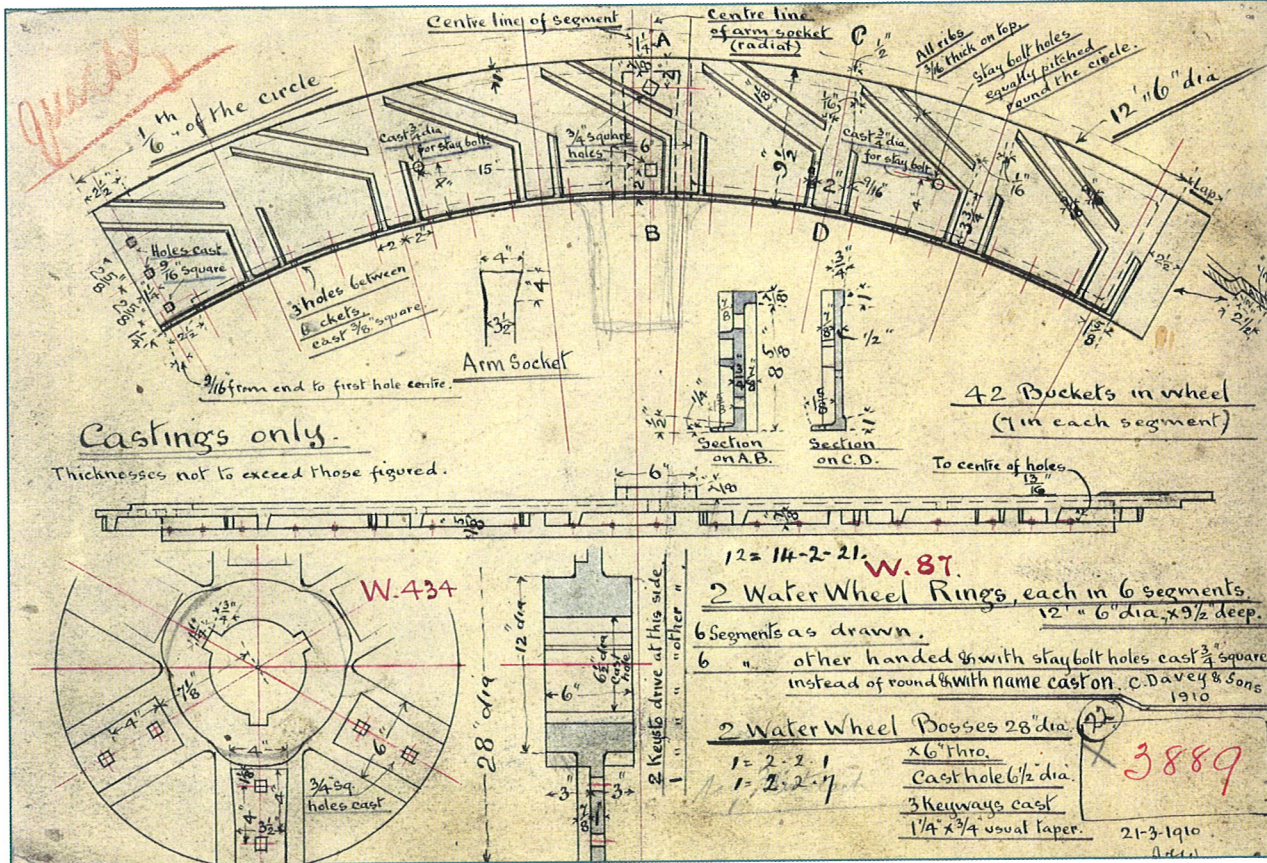 quickly
Centre line of segment
Centre line
of arm socket
(radial)
A
C
1/2"
All ribs
3/16 thick on top.
Stay bolt holes
equally pitched
round the circle.
12' " 6" dia
1/6 th of the circle
2 1/2"
Cast 3/4" dia
for stay bolt.
3/4" square
holes
15"
6"
9 1/2"
1/16"
Cast 3/4" dia.
for stay bolt
2"
9/16"
4"
3 3/4
1/16"
Lap
2 1/2"
Holes cast
9/16" square
2 2"
B
D
3 holes between
Buckets
cast 3/8" square.
4"
4"
3 1/2"
Arm Socket
9/16" from end to first hole centre.
3/4"
1"
7/8"
8 5/8"
1/2"
1/4"
1/2"
1"
Section
on A.B.
Section
on C.D.
42 Buckets in wheel
(7 in each segment)
Castings only.
Thicknesses not to exceed those figured.
6"
7/8
To centre of holes
13/16
12 = 14-2-21.
W.87.
W.434
2 Water Wheel Rings, each in 6 segments.
12' " 6" dia, x 9 1/2" deep.
6 Segments as drawn.
6 " other handed & with stay bolt holes cast 3/4" square
instead of round & with name cast on C. Davey & Sons
1910
2 Water Wheel Bosses 28" dia.
x 6" thro.
Cast hole 6 1/2" dia.
3 Keyways cast
1 1/4" x 3/4 usual taper.
1 = 2-2-1
1 = 2-2-7
22
3889
21-3-1910
12" dia
6 1/2" dia
cast
hole
6"
28" dia
2 Keys to drive at this side
1 " " " other "
3" 3"
7/8
1 1/4" 3/4"
7 1/8"
4"
4"
6"
1 1/8"
4"
4"
3 1/2"
3/4 sq.
holes cast